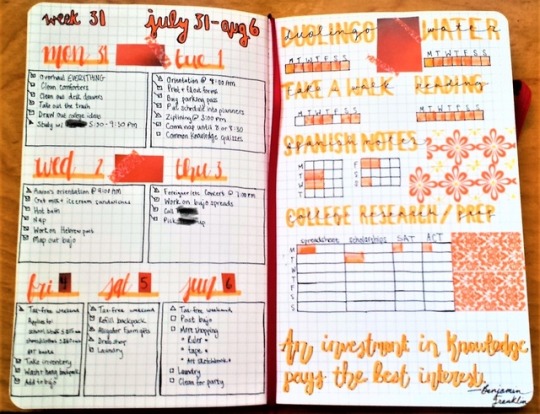 week 31
july 31-aug 6
mon 31
tue 1
Overhaul EVERYTHING
Clean comforters
Clean out desk drawers
Take out the trash
Draw out college ideas
Study w/ 5:30-9:30 PM
Orientation @ 8:00 AM
Print + fill out forms
Buy parking pass
Put schedule into planners
Ziplining @ 3:00 PM
Common Knowledge quizzes
wed 2
thu 3
orientation @ 9:00 AM
Craft milk + ice cream sandwiches
Hot bath
Nap
Work on Hebrew
Map out bujo
Concert @ 7:00 PM
Work on bujo spreads
Call
Pick up
fri 4
sat 5
sun 6
Tax-free weekend
Take inventory
backpack
Add to bujo
Tax-free weekend
Refill backpack
Alligator Farm gifts
Laundry
Tax-free weekend
Post bujo
More shopping
* tape *
Laundry
Clean for party
DUOLINGO
duolingo
WATER
water
M T W T F S S
M T W T F S S
TAKE A WALK
take a walk
READING
reading
M T W T F S S
M T W T F S S
SPANISH NOTES
spanish notes
M
T
W
T
F
S
S
COLLEGE RESEARCH/PREP
college research/prep
spreadsheet scholarships SAT ACT
M
T
W
T
F
S
S
An investment in knowledge
pays the best interest.
—Benjamin
Franklin